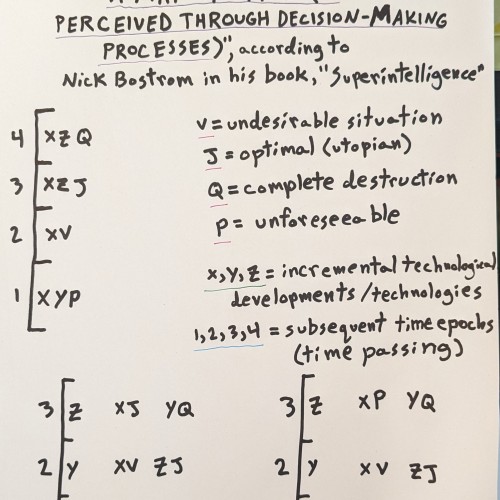 PERCEIVED THROUGH DECISION-MAKING
PROCESSES)", according to
Nick Bostrom in his book, "Superintelligence"
4 [XZQ
3 [XZJ
2 [XV
1 [XYP
V=undesirable situation
J=optimal (utopian)
Q=complete destruction
P= unforeseeable
X,Y,Z=incremental technological
developments/technologies
1,2,3,4 = subsequent time epochs
(time passing)
3 [Z XJ YQ
2 [Y XV ZJ
3 [Z XP YQ
2 [Y XV ZJ